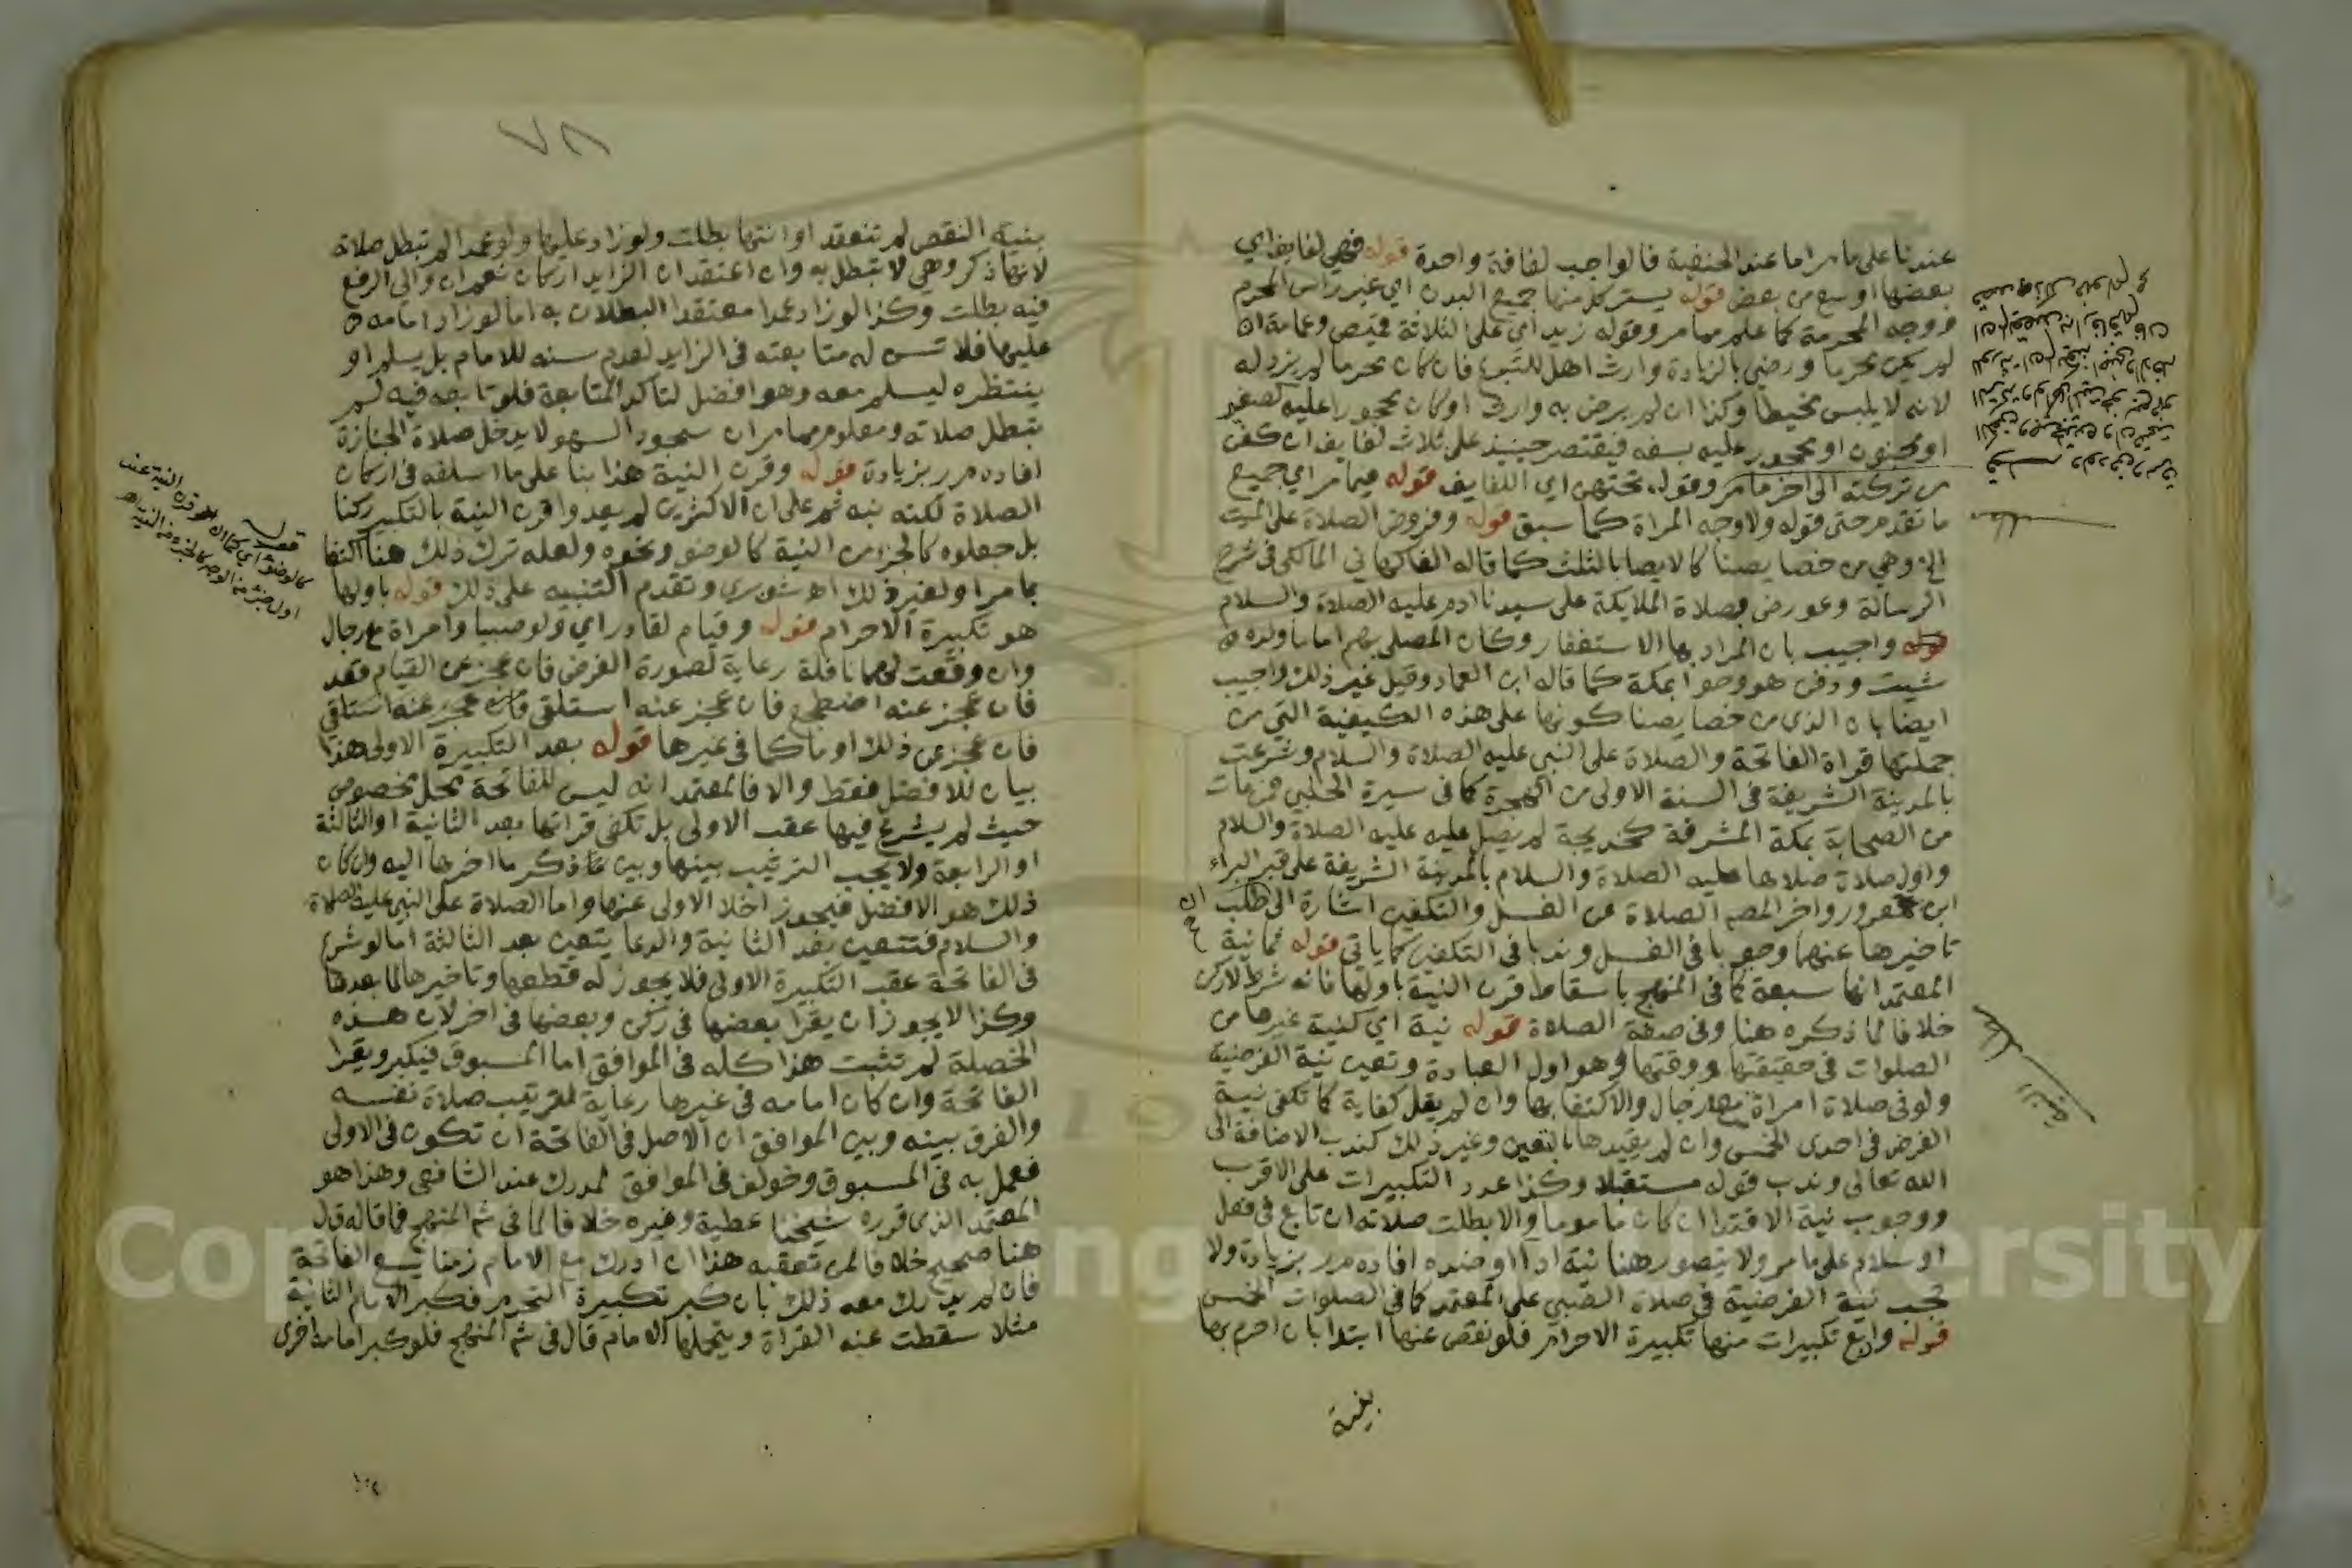 عندنا على ما مر اما عند الحنفية فالواجب لفافة واحدة قوله فهي لفايف اي
بعضها اوسع من بعض قوله يستر كل منها جميع البدن اي غير راس المحرم
ووجه المحرمة كما علم مما مر وقوله زيد اي على الثلاثة قميص وعمامة ان
لم يكن محرما ورضي بالزيادة وارث اهل للتبرع فان كان محرما لم يزد له
لانه لا يلبس مخيطا وكذا ان لم يرض به وارث او كان محجورا عليه لصغر
او مجنون او محجور عليه بسفه فيقتصر حينيذ على ثلاث لفايف ان كفن
من تركته الى اخر ما مر وقوله تحتهن اي اللفايف قوله فيما مر اي جميع
ما تقدم حتى قوله ولا وجه المراة كما سبق قوله وفروض الصلاة على الميت
الخ وهي من خصايصنا كالايصا بالثلث كما قاله الفاكهاني المالكي في شرح
الرسالة وعورض بصلاة الملايكة على سيدنا ادم عليه الصلاة والسلام
قوله واجيب بان المراد بها الاستغفار وكان المصلي بهم اماما ولده
شيث ودفن هو وحوا بمكة كما قاله ابن العماد وقيل غير ذلك واجيب
ايضا بان الذي من خصايصنا كونها على هذه الكيفية التي من
جملتها قراة الفاتحة والصلاة على النبي عليه الصلاة والسلام وشرعت
بالمدينة الشريفة في السنة الاولى من الهجرة كما في سيرة الحلبي فمن مات
من الصحابة بمكة المشرفة كخديجة لم يصل عليه عليه الصلاة والسلام
واول صلاة صلاها عليه الصلاة والسلام بالمدينة الشريفة على قبر البراء
ابن معرور واخر المصـ الصلاة عن الغسل والتكفين اشارة الى طلب
تاخيرها عنهما وجوبا في الغسل وندبا في التكفين كما ياتي قوله ثمانية
المعتمد انها سبعة كما في المنهج باسقاط قرن النية باولها فانه شرط لا ركن
خلافا لما ذكره هنا وفي صفة الصلاة قوله نية اي كنية غيرها من
الصلوات في حقيقتها ووقتها وهو اول العبادة وتعين نية الفرضية
ولو في صلاة امراة مع رجال والاكتفا بها وان لم يقل كفاية كما تكفي نية
الفرض في احدى الخمس وان لم يقيدها بالتعين وغير ذلك كندب الاضافة الى
الله تعالى وندب قوله مستقبلا وكذا عدد التكبيرات على الاقرب
ووجوب نية الاقتدا ان كان ماموما والا بطلت صلاته ان تابع في فعل
او سلام على ما مر ولا يتصور هنا نية ادآ او ضده افاده م ر بزيادة ولا
تجب نية الفرضية في صلاة الصبي على المعتمد كما في الصلوات الخمس
قوله واربع تكبيرات منها تكبيرة الاحرام فلو نقص عنها ابتدا بان احرم بها
بنية
٧٨
بنية النقص لم تنعقد او انتها بطلت ولو زاد عليها ولو عمدا لم تبطل صلاته
لانها ذكر وهي لا تبطل به وان اعتقد ان الزايد اركان نعم ان والى الرفع
فيه بطلت وكذا لو زاد عمدا معتقدا البطلان به اما لو زاد امامه
عليها فلا تسن له متابعته في الزايد لعدم سنه للامام بل يسلم او
ينتظره ليسلم معه وهو افضل لتاكد المتابعة فلو تابعه فيه لم
تبطل صلاته ومعلوم مما مر ان سجود السهو لا يدخل صلاة الجنازة
افاده م ر بزيادة قوله وقرن النية هذا بنا على ما اسلفه في اركان
الصلاة لكنه نبه ثم على ان الاكثرين لم يعدوا قرن النية بالتكبير ركنا
بل جعلوه كالجزء من النية كالوضو ونحوه ولعله ترك ذلك هنا اكتفا
بما مر او لغير ذلك اهـ شوبري وتقدم التنبيه على ذلك قوله باولها
هو تكبيرة الاحرام قوله وقيام لقادر اي ولو صبيا وامراة مع رجال
وان وقعت لهما نافلة رعاية لصورة الفرض فان عجز عن القيام قعد
فان عجز عنه اضطجع فان عجز عنه استلقى فان عجز عنه استلقى
فان عجز عن ذلك اوما كما في غيرها قوله بعد التكبيرة الاولى هذا
بيان للافضل فقط والا فالمعتمد انه ليس للفاتحة محل مخصوص
حيث لم يشرع فيها عقب الاولى بل تكفي قراتها بعد الثانية او الثالثة
او الرابعة ولا يجب الترتيب بينها وبين ما ذكر ما اخرها اليه وان كان
ذلك هو الافضل فيجوز اخلا الاولى عنها واما الصلاة على النبي عليه الصلاة
والسلام فتتعين بعد الثانية والدعا يتعين بعد الثالثة اما لو شرع
في الفاتحة عقب التكبيرة الاولى فلا يجوز له قطعها وتاخيرها لما بعدها
وكذا لا يجوز ان يقرا بعضها في ركن وبعضها في اخر لان هذه
الخصلة لم تثبت هذا كله في الموافق اما المسبوق فيكبر ويقرا
الفاتحة وان كان امامه في غيرها رعاية لترتيب صلاة نفسه
والفرق بينه وبين الموافق ان الاصل في الفاتحة ان تكون في الاولى
فعمل به في المسبوق وخولف في الموافق لمدرك عند الشافعي وهذا هو
المعتمد الذي قرره شيخنا عطية وغيره خلافا لما في شم المنهج فما قاله ق ل
هنا صحيح خلافا لمن تعقبه هذا ان ادرك مع الامام زمنا يسع الفاتحة
فان لم يدرك معه ذلك بان كبر تكبيرة التحرم فكبر الامام الثانية
مثلا سقطت عنه القراة ويتحملها الامام قال في شم المنهج فلو كبر امامه اخرى
قوله
كالوضو اي كما ان قرن النية عند